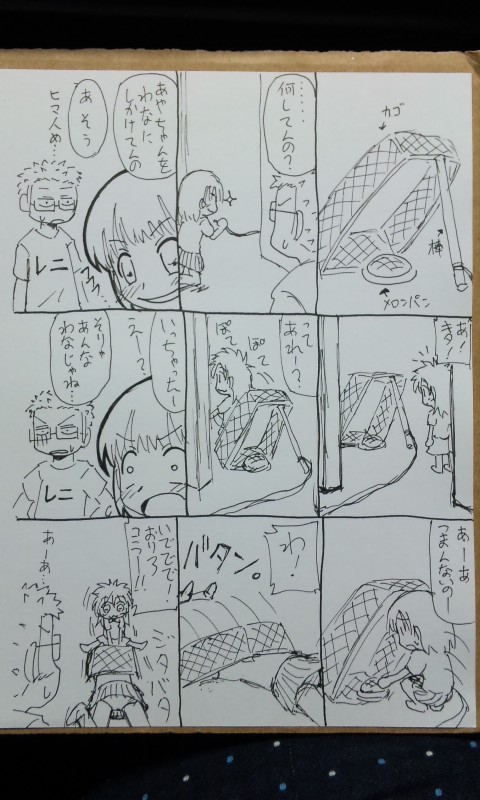 カゴ
棒
メロンパン
・・・・・
何してんの？
あやちゃんを
わなに
しかけてんの
あそう
ヒマ人め…
レニ
あ！
きた！
って
あれー？
ぽて
ぽて
いっちゃたー
えー？
そりゃ
あんな
わなじゃね…
レニ
あーあ
つまんないのー
わ！
バタン。
いでででで！
おりろ
コラー!!
ジタバタ
あーあ…